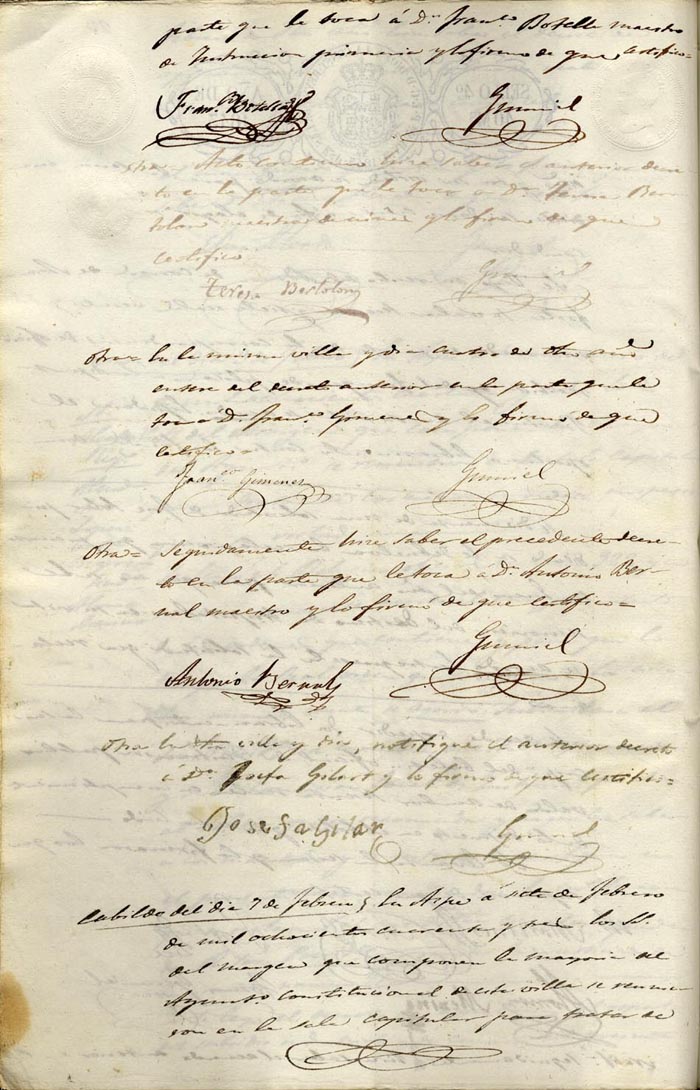 parte que le toca á D.n Fran.co Botella maestro
de Instruccion primaria y lo firmo de que certifico=
Fran.co Botella Gumiel
otra= Acto continuo hice saber el anterior decre-
to en la parte que le toca á D.a Teresa Ber-
tolon maestra de niñas y lo firmo de que
certifico
Teresa Bertolon Gumiel
Otra= En la misma villa y dia cuatro de dho año
entere del decreto anterior en la parte que le
toca á D. Fran.co Gimenez y lo firmo de que
certifico=
Fran.co Gimenez Gumiel
Otra= Seguidamente hice saber el precedente decre-
to en la parte que le toca á D.n Antonio Ber-
nal maestro y lo firmó de que certifico=
Antonio Bernal Gumiel
Otra En dha villa y dia, notifiqué el anterior decreto
á D.a Josefa Gilart y lo firmo de que certifico=
Josefa Gilar Gumiel
Cabildo del dia 7 de febrero En Aspe á siete de febrero
de mil ochocientos cuarenta y seis los SS.
del margen que componen la mayoria del
Ayunt.o constitucional de esta villa se reunie-
ron en la sala capitular para tratar de